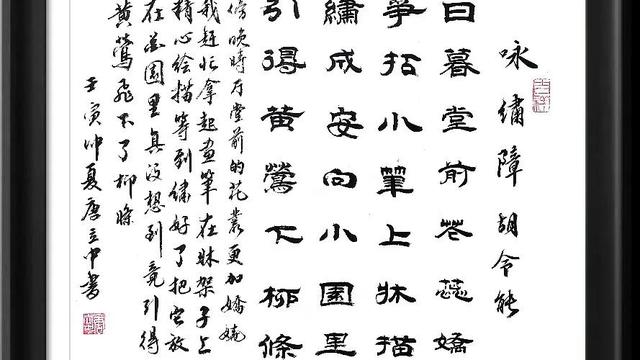 咏繡障胡令能
日暮堂前花蕊嬌
爭拈小筆上牀描
繡成安向小園里
引得黄鶯下柳條
傍晚時分堂前的花叢更加嬌嬈
我赶忙拿起画筆在牀架子上
精心绘描等到繡好了把它放
在花園里真没想到竟引得
黄鶯飛下了柳條
壬寅仲夏唐立中書